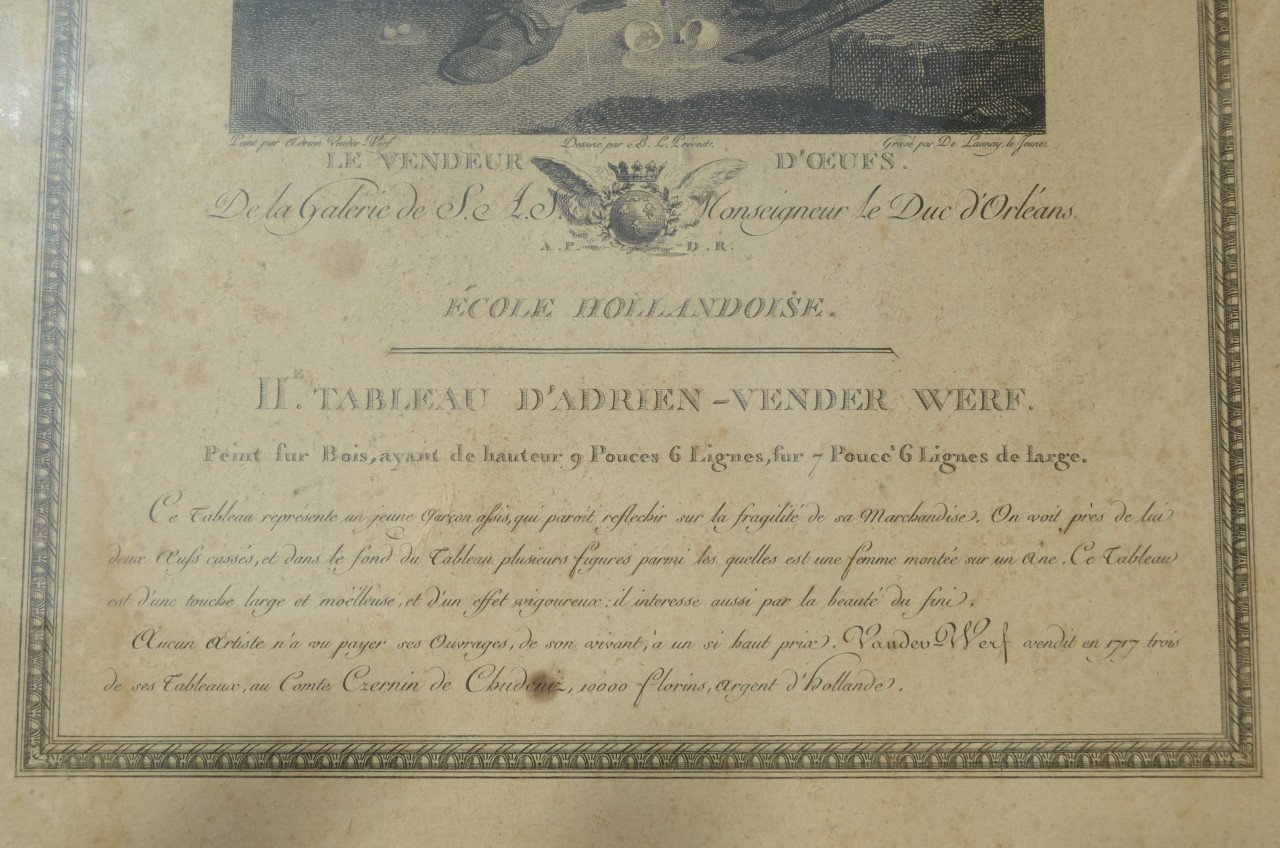 Peint par Adrien Vender Werf Dessiné par B. L. Prévost. Gravé par De Launay, le Jeune.
LE VENDEUR D'ŒUFS.
De la Galerie de S. A. S. Monseigneur le Duc d'Orléans.
A. P. D. R.
ÉCOLE HOLLANDOISE.
IIE. TABLEAU D'ADRIEN-VENDER WERF.
Peint sur Bois, ayant de hauteur 9 Pouces 6 Lignes, sur 7 Pouces 6 Lignes de large.
Ce Tableau représente un jeune Garçon assis, qui paroit reflechir sur la fragilité de sa Marchandise. On voit près de lui
deux Œufs cassés, et dans le fond du Tableau plusieurs figures parmi les quelles est une femme montée sur un Ane. Ce Tableau
est d'une touche large et moëlleuse, et d'un effet vigoureux: il interesse aussi par la beauté du fini.
Aucun Artiste n'a vu payer ses Ouvrages, de son vivant, à un si haut prix. Vander-Werf vendit en 1717 trois
de ses Tableaux, au Comte Czernin de Chudeniz, 10000 florins, Argent d'Hollande.